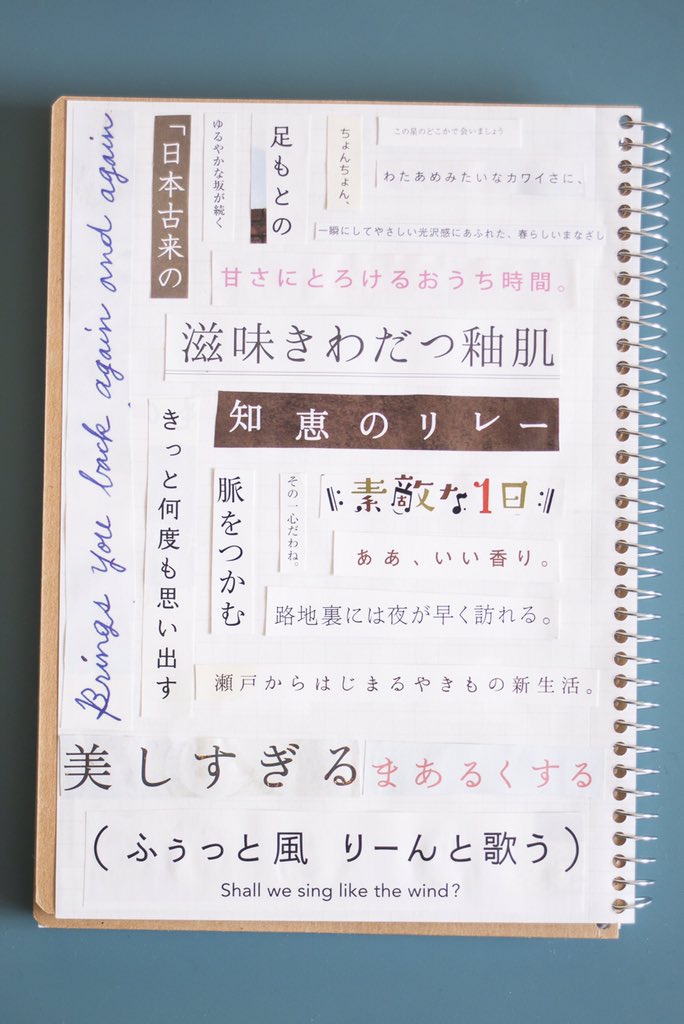 Brings you back again and again
「日本古来の
ゆるやかな坂が続く
足もとの
ちょんちょん、
この星のどこかで会いましょう
わたあめみたいなカワイさに、
一瞬にしてやさしい光沢感にあふれた、春らしいまなざし
甘さにとろけるおうち時間。
滋味きわだつ釉肌
知恵のリレー
きっと何度も思い出す
脈をつかむ
その一心だわね。
素敵な1日
ああ、いい香り。
路地裏には夜が早く訪れる。
瀬戸からはじまるやきもの新生活。
美しすぎる
まあるくする
(ふぅっと風 りーんと歌う)
Shall we sing like the wind?